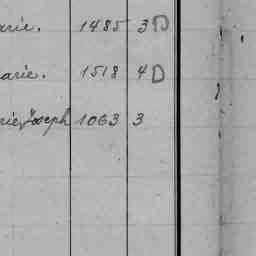 arie. 1485 3 D
arie. 1518 4 D
rie Joseph 1063 3